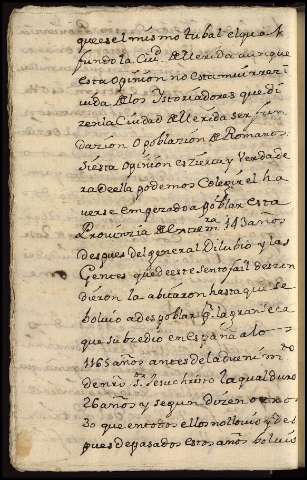 que es el mismo tubal el que
fundo la Ciud. de llerida aunque
esta opinion no esta mui rrezi
uida de los Istoriadores que di
zen la Ciudad de llerida ser fun
dazion o poblazion de Romanos.
Si esta opinion es zierta y Verdade
ra de ella podemos Colegir el ha
verse empezado a poblar esta
Provinzia de Entre m.ra 143 años
despues del general Dilubio y las
Gentes que de este sento jail deszen
dieron la abitaron hasta que se
bolvio a despoblar p.r la gran seca
que suszedio en España a lo
1165 años antes de la Venim.to
de nr̃o s.r Jesuchristo la qual duro
26 años y segun dizen otros
30 que en todos ellos no llovio y des
pues de pasados estos años bolvio